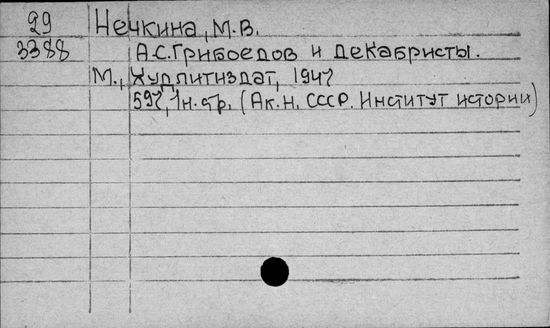 29 Нечкина, М.В.
3388 А.С.Грибоедов и декабристы.
М., Худлитиздат, 1947
597, 1н. стр. (Ак.н. СССР. Институт истории)